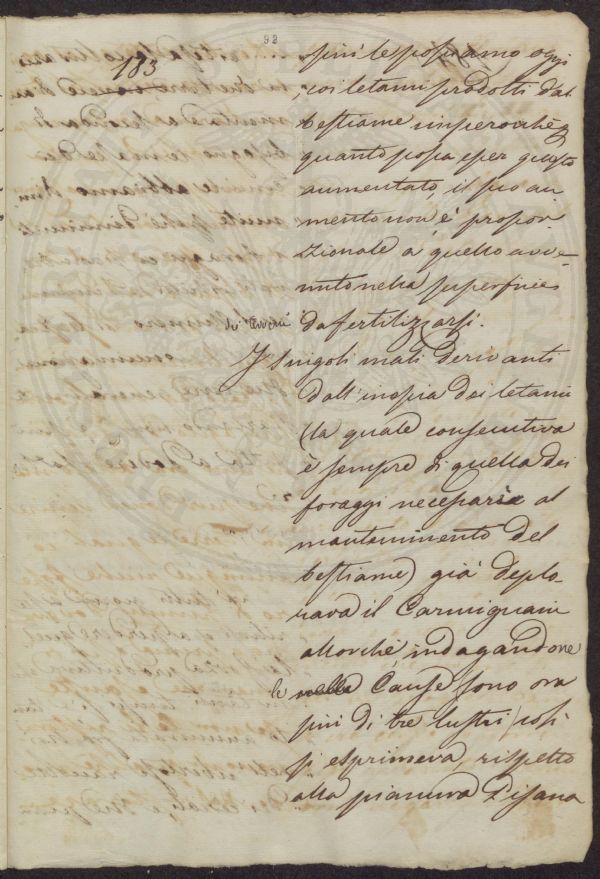 92
183
più le possiamo oggi
coi letami prodotti dal
bestiame imperochè
quanto possa esser questo
aumentato, il suo au-
mento non è propor-
zionale a quello avve-
nuto nella superficie
da fertilizzarsi.
I singoli mali derivanti
dall'inopia dei letami
(la quale consecutiva
è sempre di quella dei
foraggi necessarie al
mantenimento del
bestiame) già deplo-
rava il Carmignani
allorchè, indagandone
le Cause sono ora
più di tre lustri, così
si esprimeva, rispetto
alla pianura Pisana